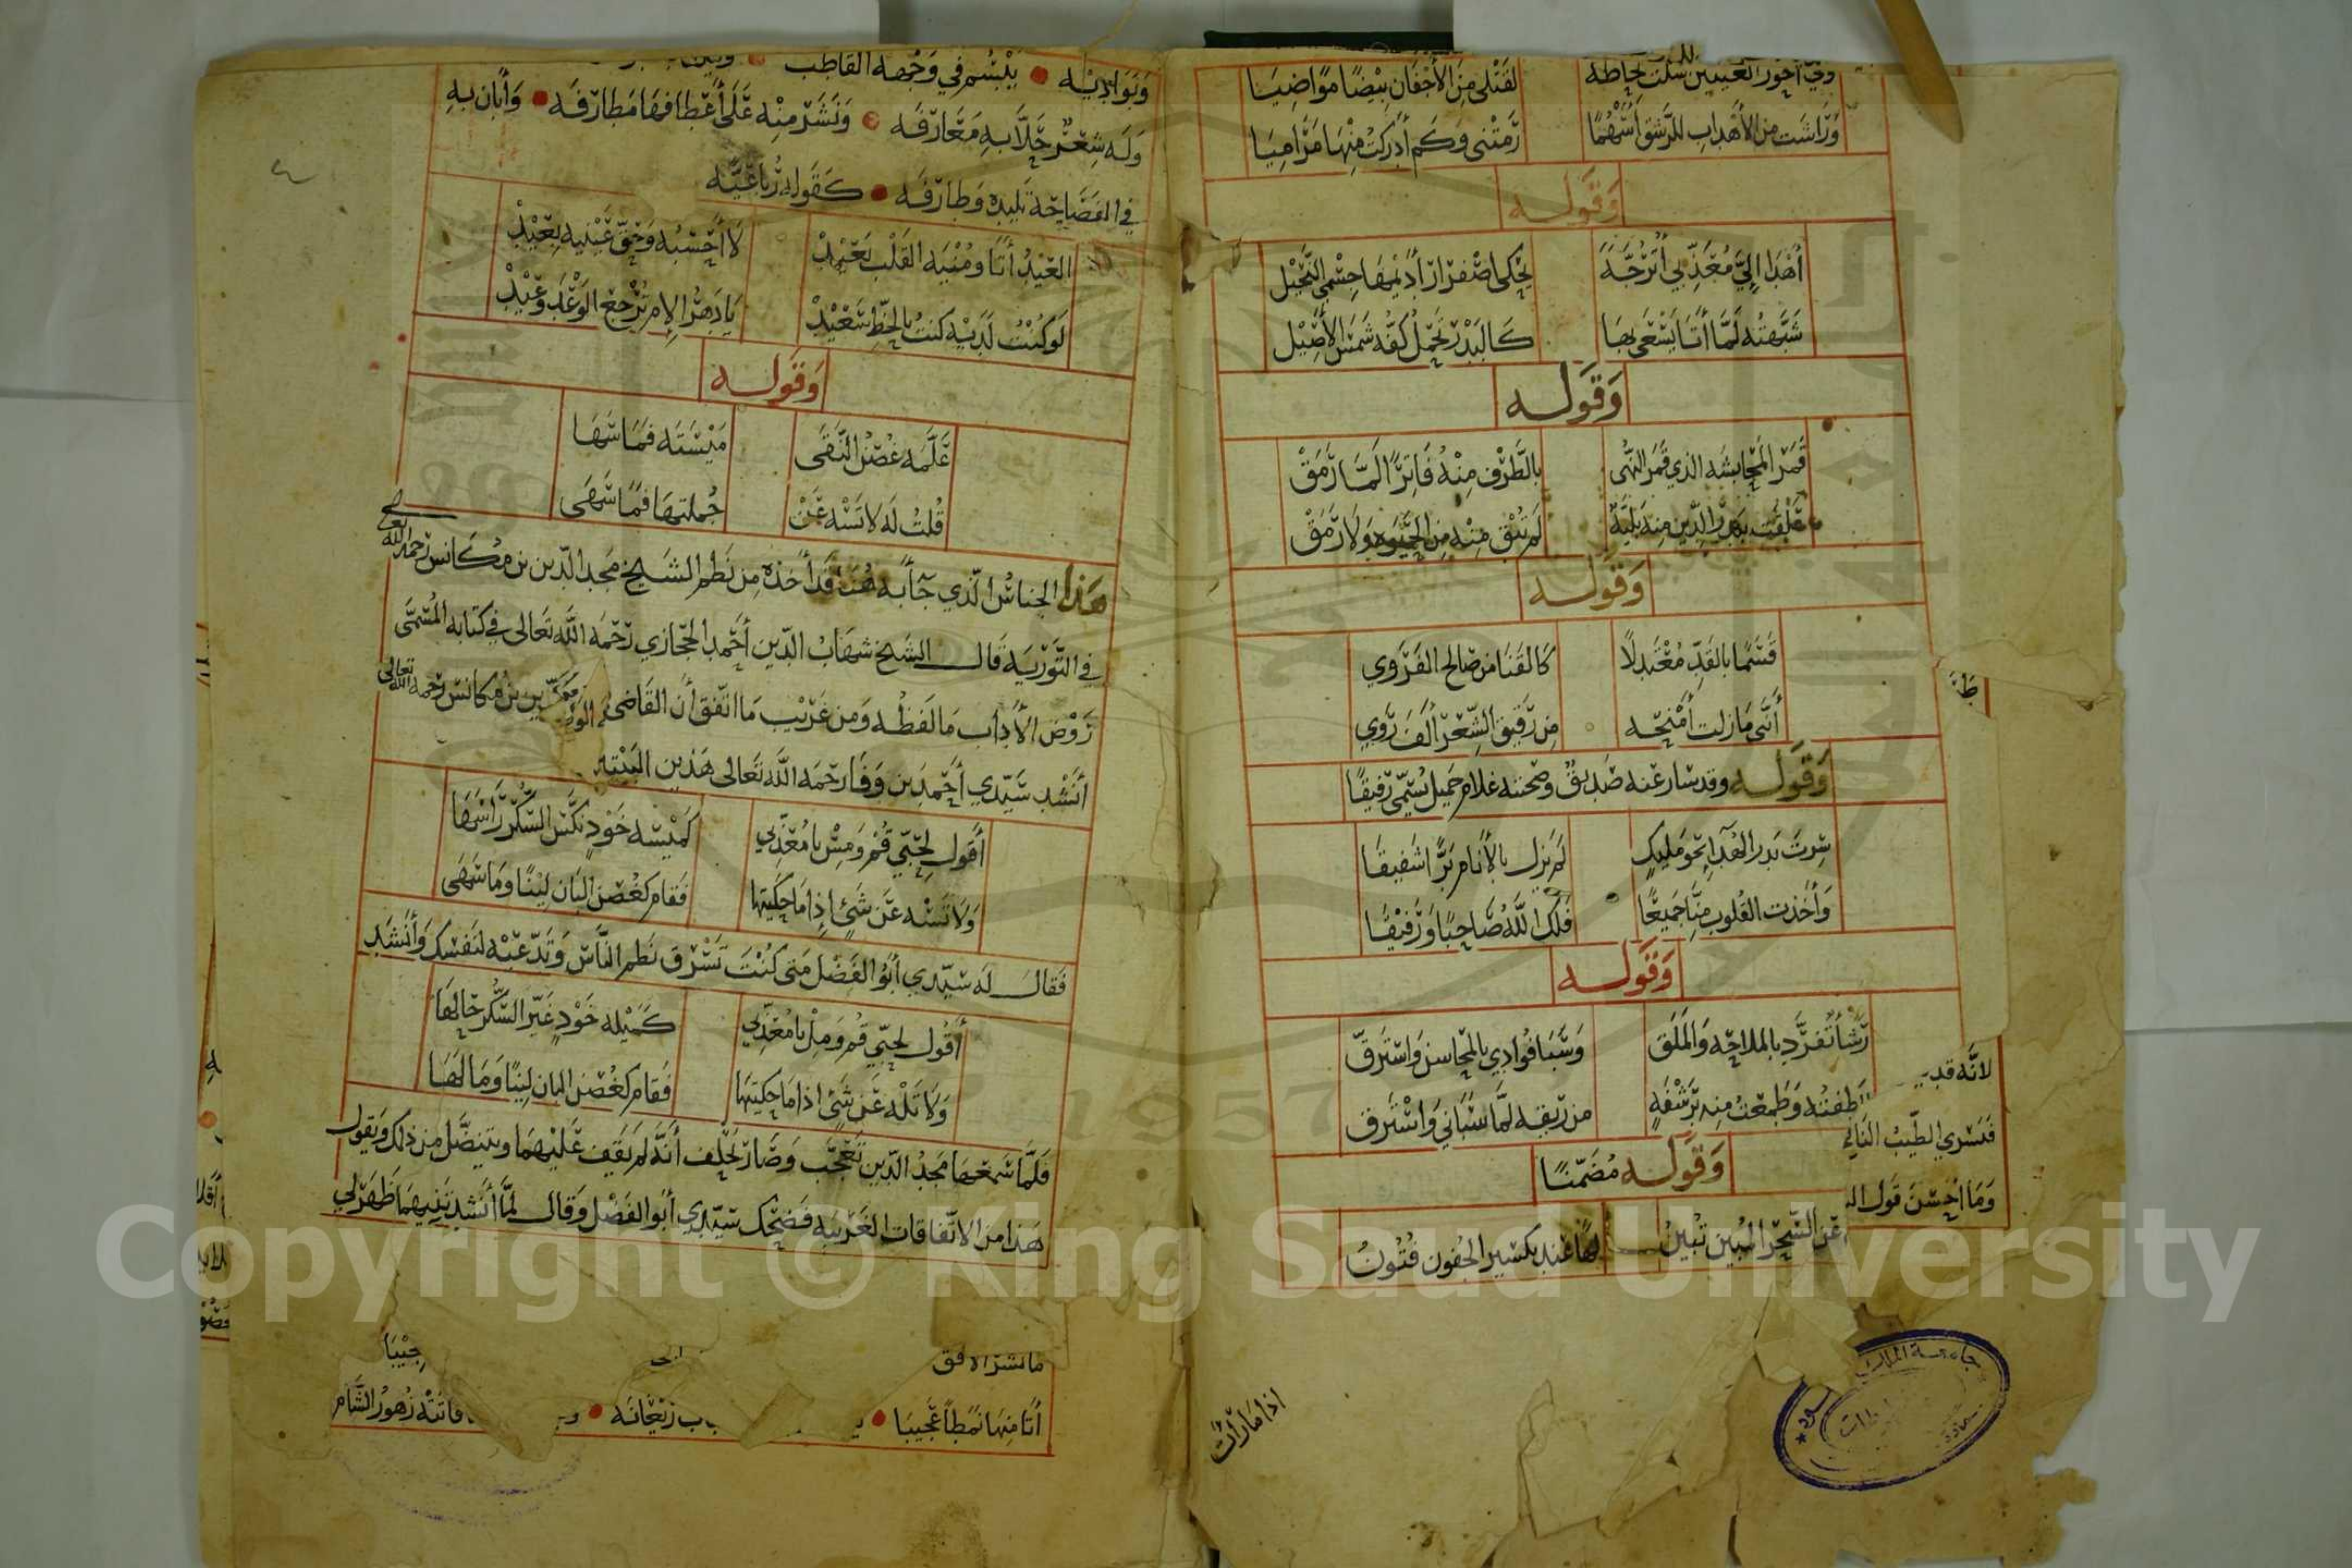 وفي أحور العينين سلت لحاظه لقتلى من الأجفان بيضًا مواضيا
وراشت من الأهداب للرشق أسهمًا رمتني وكم أدركت منها مراميا
وقوله
أهدا إليّ معذبي أترجّة يحكي اصفرار أديمها جسمي النحيل
شبهته لمّا أتا يسعى بها كالبدر تحمل كفّه شمس الأصيل
وقوله
قمر المحاسنه الذي قمر النهى بالطرف منه فاترًا لمّا رمق
علقت يهز الدين منه بليّة لم تبق منه من الحيوة ولا رمق
وقوله
قسمًا بالقدّ معتدلًا كالقنا من صالح الفروي
أنني ما زلت أمنحه من رقيق الشعر ألف روي
وقوله وقد سار عنه صديق وصحبته غلام جميل يسمّى رفيقًا
سرت بدر الهدا نحو مليك لم يزل بالأنام برًّا شفيقا
وأخذت القلوب منّا جميعًا فلك الله صاحبًا ورفيقًا
وقوله
رشأ تفرّد بالملاحة والملق وسبا فؤادي بالمحاسن واسترق
لاطفته وطمعت منه برشفة من ريقه لمّا سباني واسترق
وقوله مضمّنًا
عن السحر المبين تبين لها عند تكسير الجفون فتون
لانّه قد
فتسري الطيب
وما أحسن قول
اذا ما رأت
وبواديه • يبسم في وجهه القاطب
وله شعر حلّا به معارفه • ونشر منه على أعطافها مطارفه • وأبان به
في الفصاحة تليده وطارفه • كقوله رباعيّه
العيد أتا ومنيه القلب بعيد لا أحسبه وحق عينيه بعيد
لو كنت لديه كنت بالحظ سعيد يا دهر إلام ترجع الوعد وعيد
وقوله
علّمه غصن النقى ميسته فما سها
قلت له لا تسه عن جملتها فما سهى
هذا الجناس الذي جآ به هنا قد أخذه من نظم الشيخ مجد الدين بن مكانس رحمه الله تعالى
في التورية قال الشيخ شهاب الدين أحمد الحجازي رحمه الله تعالى في كتابه المسمّى
روض الآداب ما لفظه ومن غريب ما اتفق أن القاضي بن مكانس رحمه الله تعالى
أنشد سيدي أحمد بن وفا رحمه الله تعالى هذين البيتين
أقول لحبّي قم ومس يا معذّبي كميسة خود نكّس السكر رأسها
ولا تسه عن شئ إذا ما حكيتها فقام كغصن البان لينًا وما سهى
فقال له سيدي أبو الفضل متى كنت تسرق نظم الناس وتدّعيه لنفسك وأنشد
أقول لحبّي قم ومل يا معذّبي كميلة خود غيّر السكر حالها
ولا تله عن شئ اذا ما حكيتها فقام كغصن البان لينًا وما لها
فلمّا سمعها مجد الدين تعجّب وصار يحلف أنّه لم يقف عليهما ويتنصّل من ذلك ويقول
هذا من الاتفاقات الغريبة فضحك سيدي أبو الفضل وقال لمّا أنشدتنيهما ظهر لي
ما نشر الافق
أتا منها نمطًا عجيبا • ريعانه • فاتته زهور الشام
Copyright © King Saud University
1957